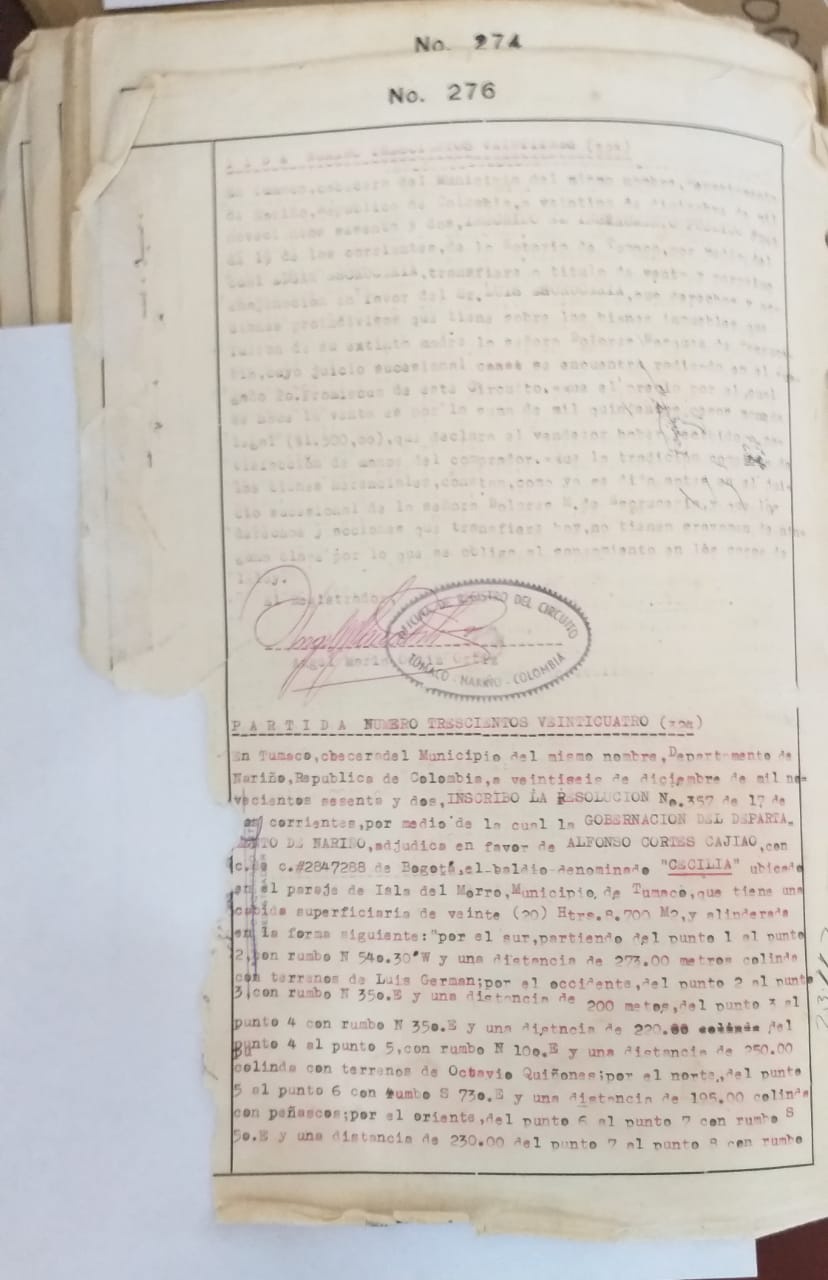 No. 274
No. 276
En Tumaco, cabecera del Municipio del mismo nombre,
de Nariño, Republica de Colombia, a veintiseis de diciembre de mil
novecientos sesenta y dos,
el 19 de los corrientes, de la Notaria de Tumaco, por medio del
transfiere a titulo de venta
enajenación en favor del Sr. LUIS sus derechos y
proindiviso que tiene sobre los bienes inmuebles que
fueron de su extinta madre la señora Dolores
cuyo juicio sucesional se encuentra radicado en el
2o. Promiscuo de este Circuito.- que el precio por el cual
se hace la venta es por la suma de mil quinientos pesos
legal ($1.500,oo), que declara el vendedor haber recibido a
de manos del comprador.- que la tradición
los bienes herenciales, constan, como ya se dijo antes en el
sucesional de la señora Dolores M. de
derechos y acciones que transfiere hoy, no tienen gravamen de
clase por lo que se obliga al saneamiento en los casos de
ley.
El Registrador,
OFICINA DE REGISTRO DEL CIRCUITO
TUMACO - NARIÑO - COLOMBIA
Angel Maria Ortiz
P A R T I D A NUMERO TRESCIENTOS VEINTICUATRO (324)
En Tumaco, cbeceradel Municipio del mismo nombre, Departamento de
Nariño, Republica de Colombia, a veintiseis de diciembre de mil no-
vecientos sesenta y dos, INSCRIBO LA RESOLUCION No. 357 de 17 de
corrientes, por medio de la cual la GOBERNACION DEL DEPARTA-
MENTO DE NARIÑO, adjudica en favor de ALFONSO CORTES CAJIAO, con
c. de c.#2847288 de Bogotá, el baldio denominado "CECILIA" ubicado
en el paraje de Isla del Morro, Municipio de Tumaco, que tiene una
cabida superficiaria de veinte (20) Htrs. 8.700 M2, y alinderada
en la forma siguiente: "por el sur, partiendo del punto 1 al punto
2, con rumbo N 54o.30'W y una distancia de 273.00 metros colinda
con terrenos de Luis German; por el occidente, del punto 2 al punto
3, con rumbo N 35o.E y una distancia de 200 metos, del punto 3 al
punto 4 con rumbo N 35o.E y una distncia de 220.00 colinda del
punto 4 al punto 5, con rumbo N 10o.E y una distancia de 250.00
colinda con terrenos de Octavio Quiñones; por el norte,, del punto
5 al punto 6 con rumbo S 73o.E y una distancia de 195.00 colinda
con peñascos; por el oriente, del punto 6 al punto 7 con rumbo S
5o.E y una distancia de 230.00 del punto 7 al punto 8 con rumbo